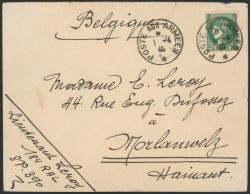 Belgique
POSTE AUX ARMEES
POSTE AUX ARMEES
Madame E. Leroy
44 Rue Eug. Dufossez
à
Morlanwelz
Hainaut
Lieutenant Leroy
184 RAL
S.P. 390